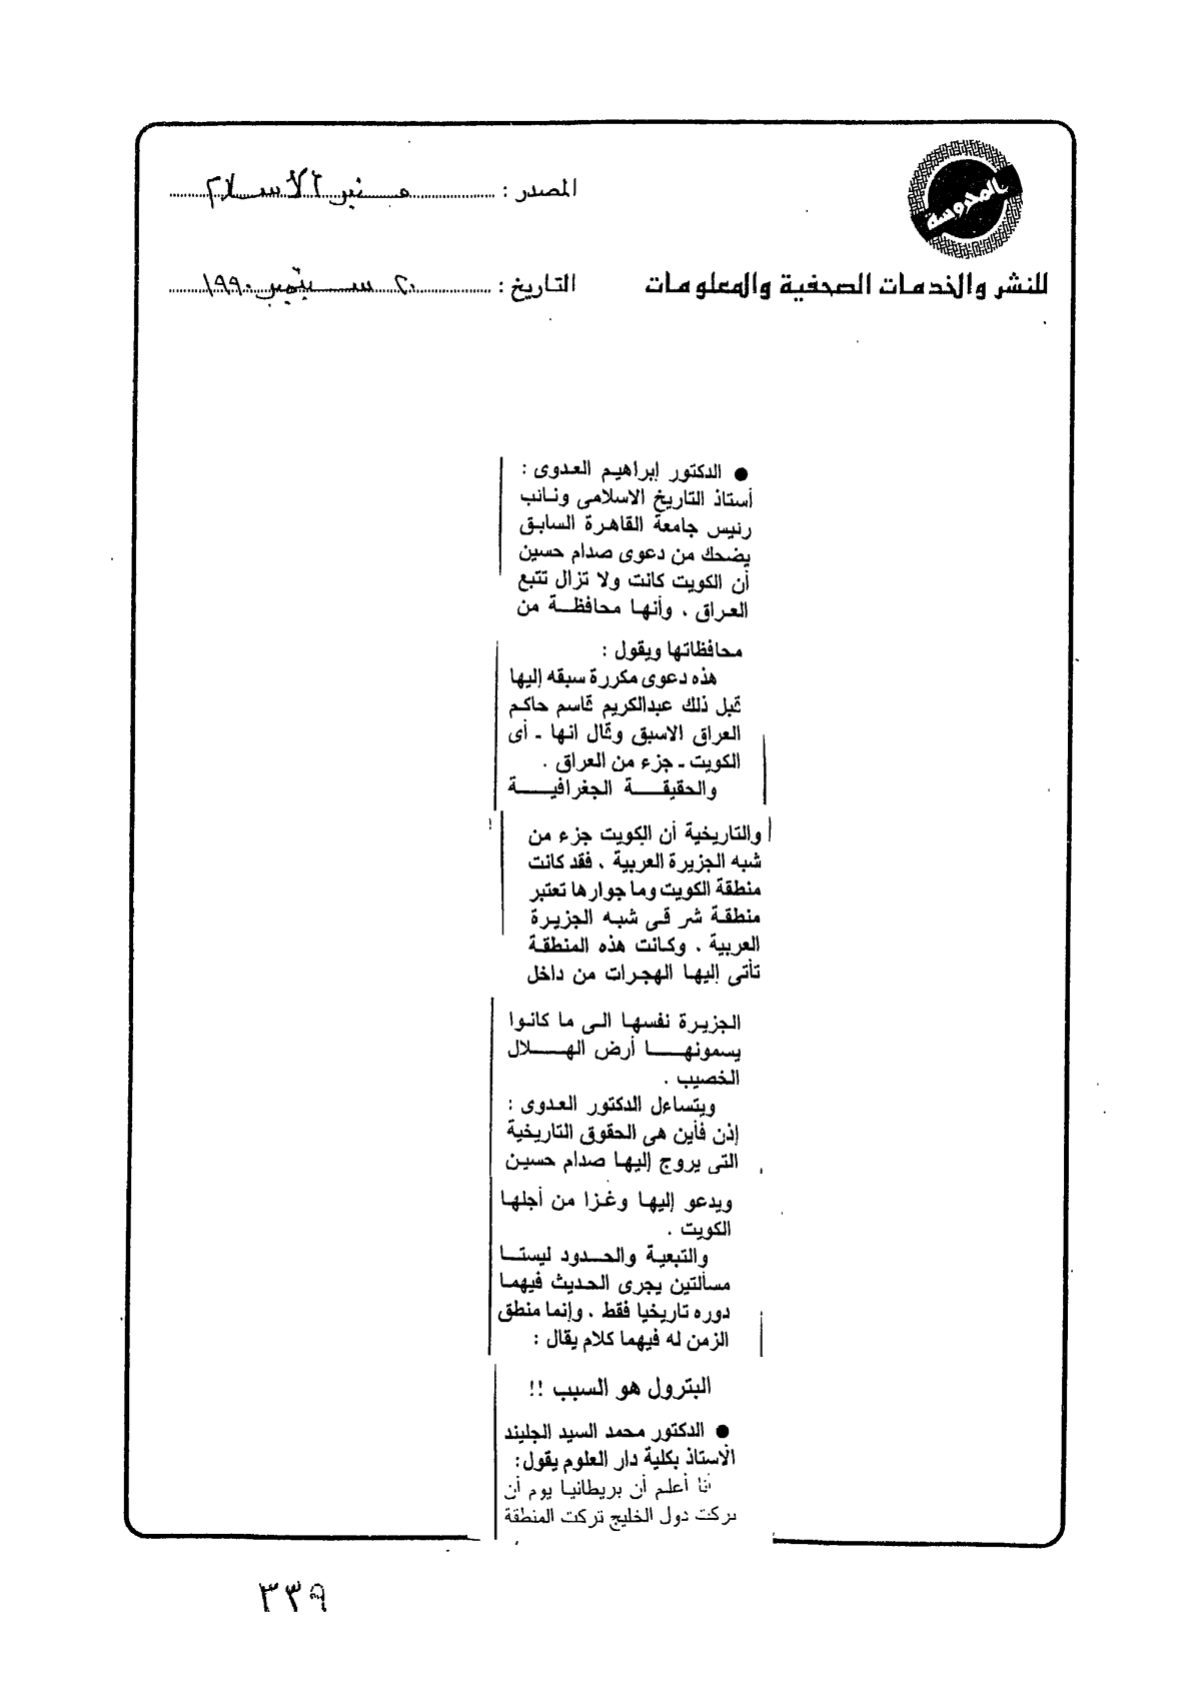 المحروسة
للنشر والخدمات الصحفية والمعلومات
المصدر : منبر الاسلام
التاريخ : ٢٠ سبتمبر ١٩٩٠
● الدكتور إبراهيم العدوى :
أستاذ التاريخ الاسلامى ونائب
رئيس جامعة القاهرة السابق
يضحك من دعوى صدام حسين
أن الكويت كانت ولا تزال تتبع
العراق ، وأنها محافظة من
محافظاتها ويقول :
هذه دعوى مكررة سبقه إليها
قبل ذلك عبدالكريم قاسم حاكم
العراق الاسبق وقال انها ـ أى
الكويت ـ جزء من العراق .
والحقيقة الجغرافية
والتاريخية أن الكويت جزء من
شبه الجزيرة العربية ، فقد كانت
منطقة الكويت وما جوارها تعتبر
منطقة شرقى شبه الجزيرة
العربية ، وكانت هذه المنطقة
تأتى إليها الهجرات من داخل
الجزيرة نفسها الى ما كانوا
يسمونها أرض الهلال
الخصيب .
ويتساءل الدكتور العدوى :
إذن فأين هى الحقوق التاريخية
التى يروج إليها صدام حسين
ويدعو إليها وغزا من أجلها
الكويت .
والتبعية والحدود ليستا
مسألتين يجرى الحديث فيهما
دوره تاريخيا فقط ، وإنما منطق
الزمن له فيهما كلام يقال :
البترول هو السبب !!
● الدكتور محمد السيد الجليند
الأستاذ بكلية دار العلوم يقول:
أنا أعلم أن بريطانيا يوم أن
تركت دول الخليج تركت المنطقة
٣٣٩